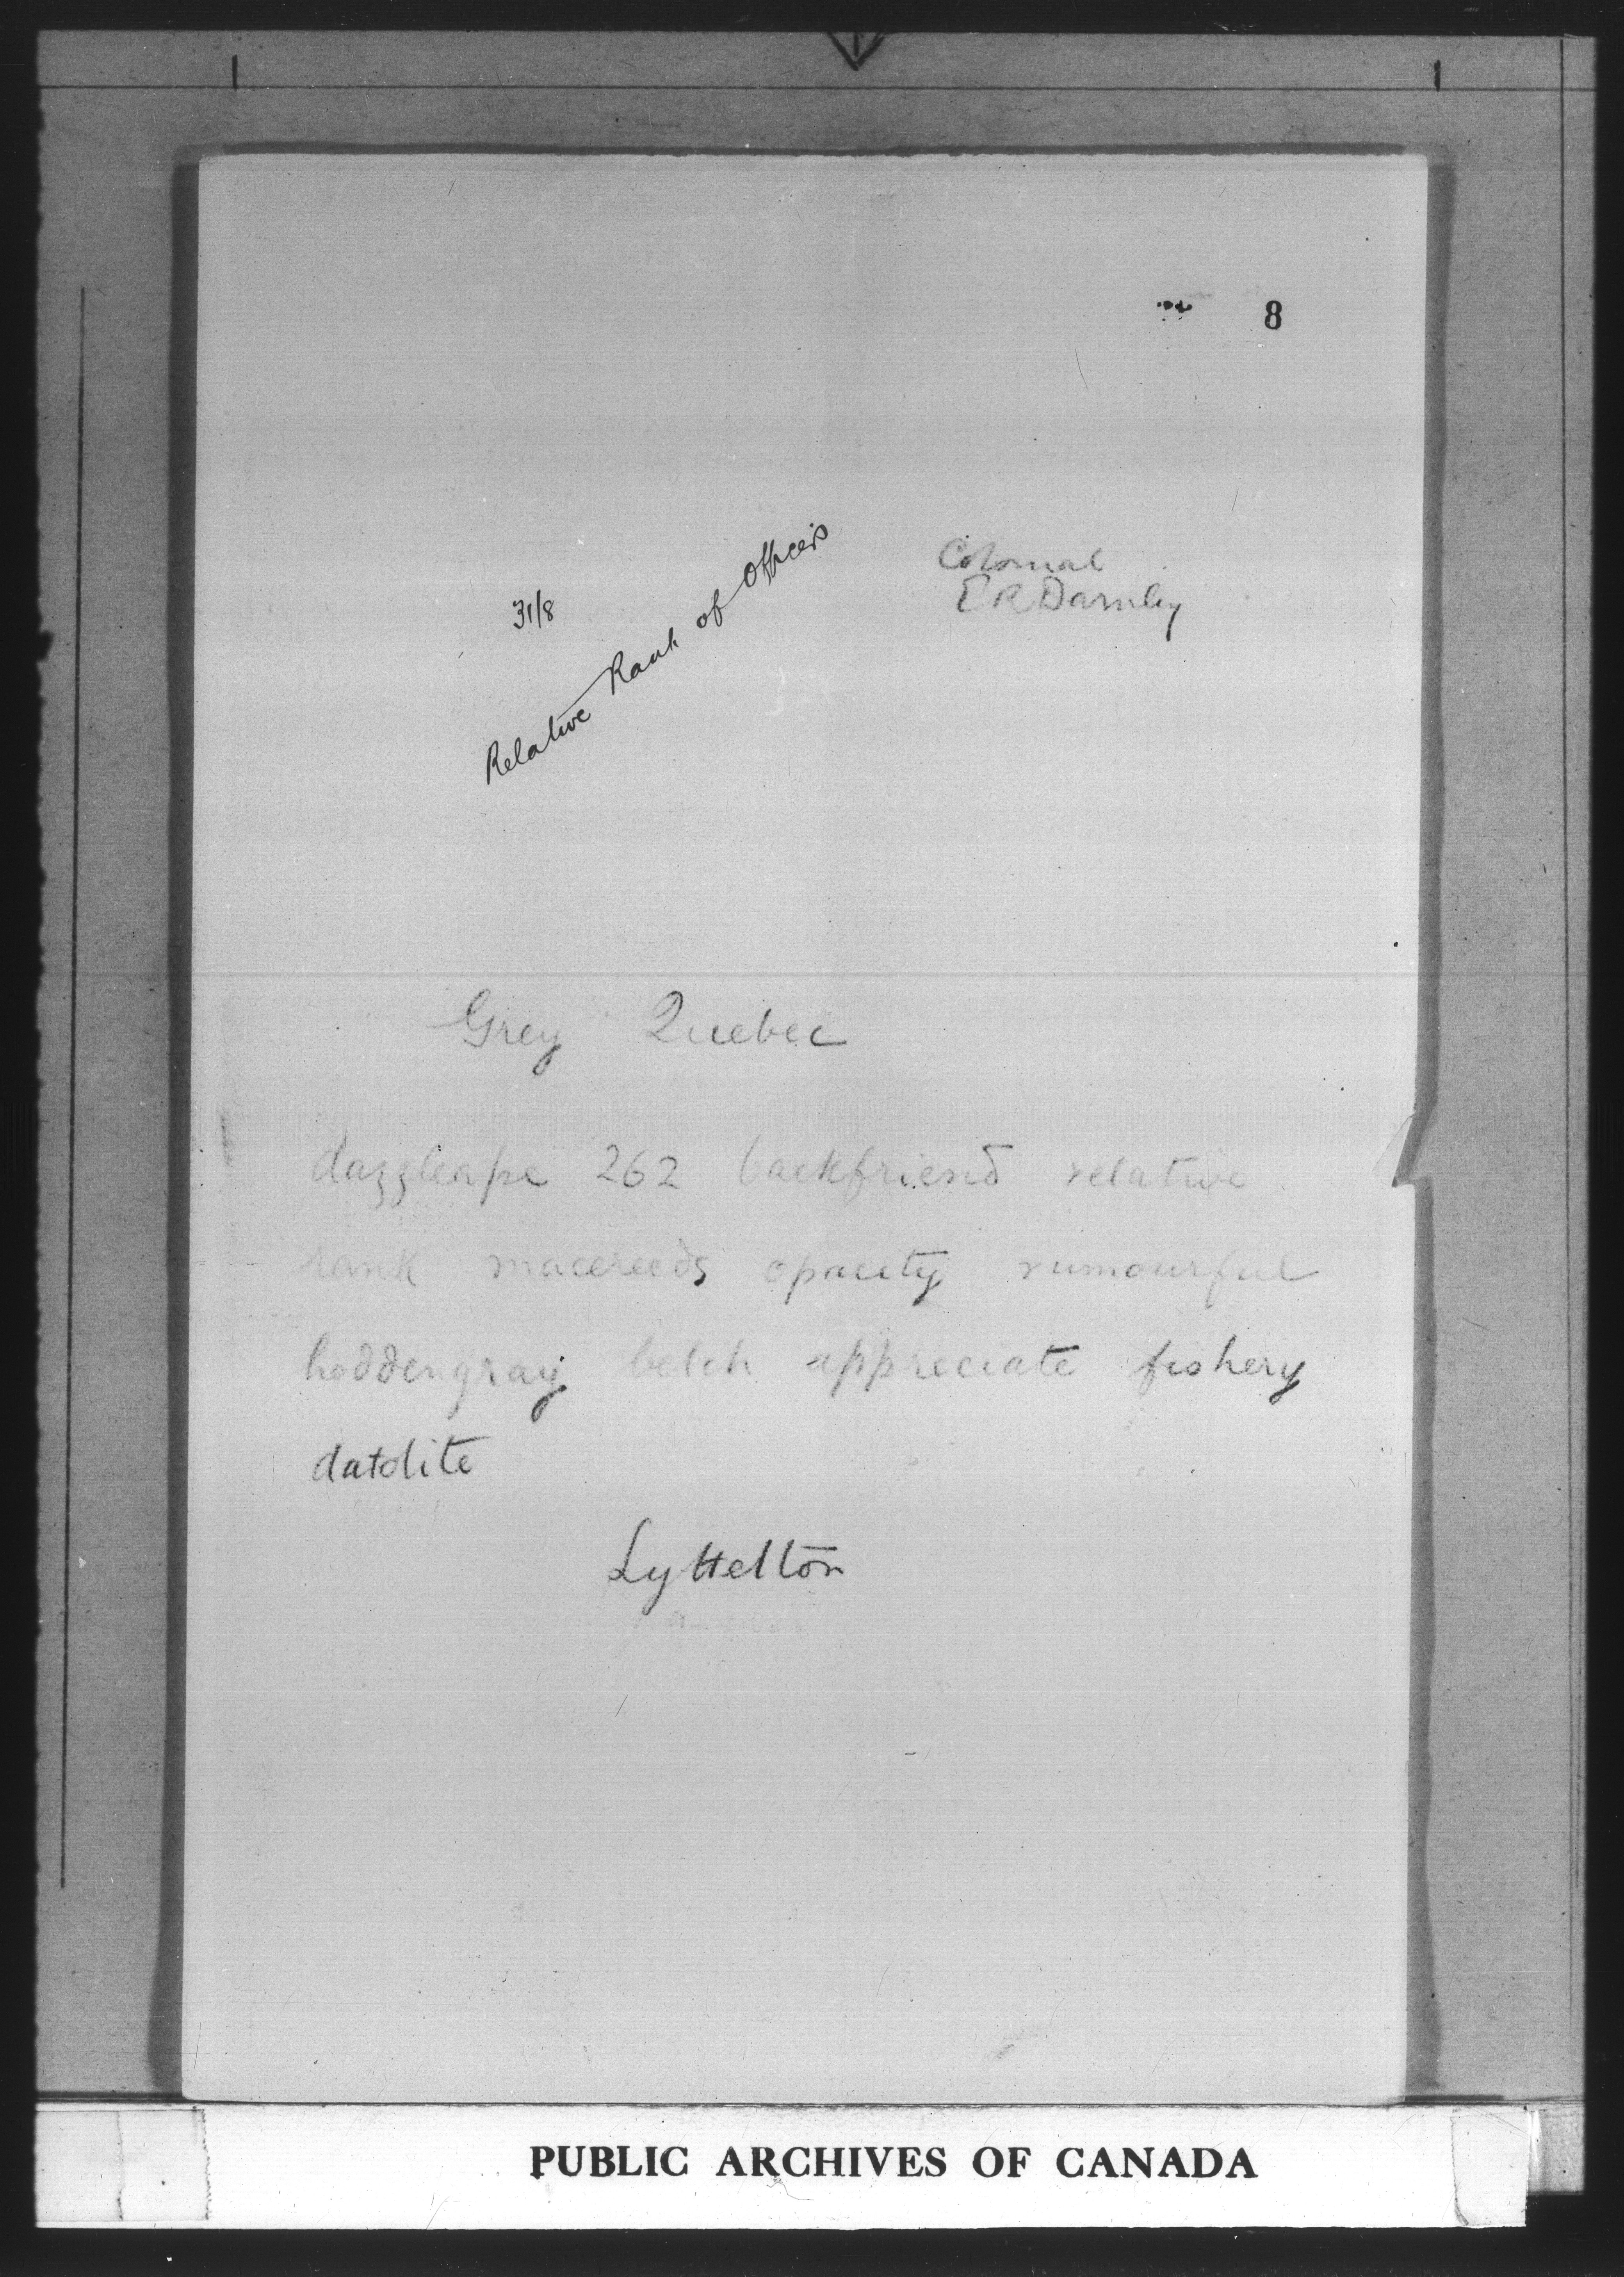 8
Colonial
E R Darnley
31/8
Relative Rank of Officers
Grey Quebec
dazzleape 262 backfriend relative
rank macereeds opacity rumourful
hoddengray belch appreciate fishery
datolite
Lyttelton
PUBLIC ARCHIVES OF CANADA